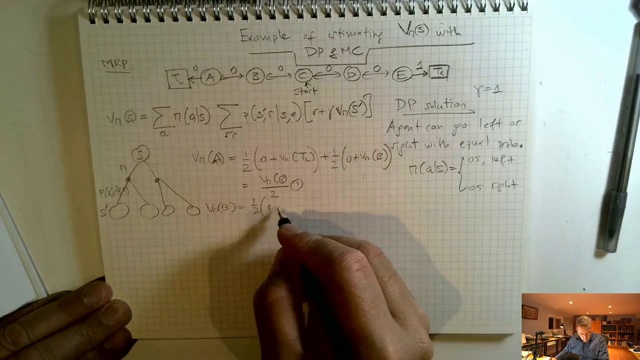 Example of estimating Vπ(s) with
DP & MC
MRP
TL 0 A 0 B 0 C 0 D 0 E 1 TR
start
Vπ(s) = Σa π(a|s) Σs'r p(s',r|s,a) [r + γ Vπ(s')]
DP solution
γ=1
Agent can go left or
right with equal prob.
π(a|s) = { 0.5, left
0.5 right
S
π
s'
Vπ(A) = 1/2 (0 + Vπ(TL)) + 1/2 (0 + Vπ(B))
= Vπ(B)/2 ①
Vπ(B) = 1/2 (